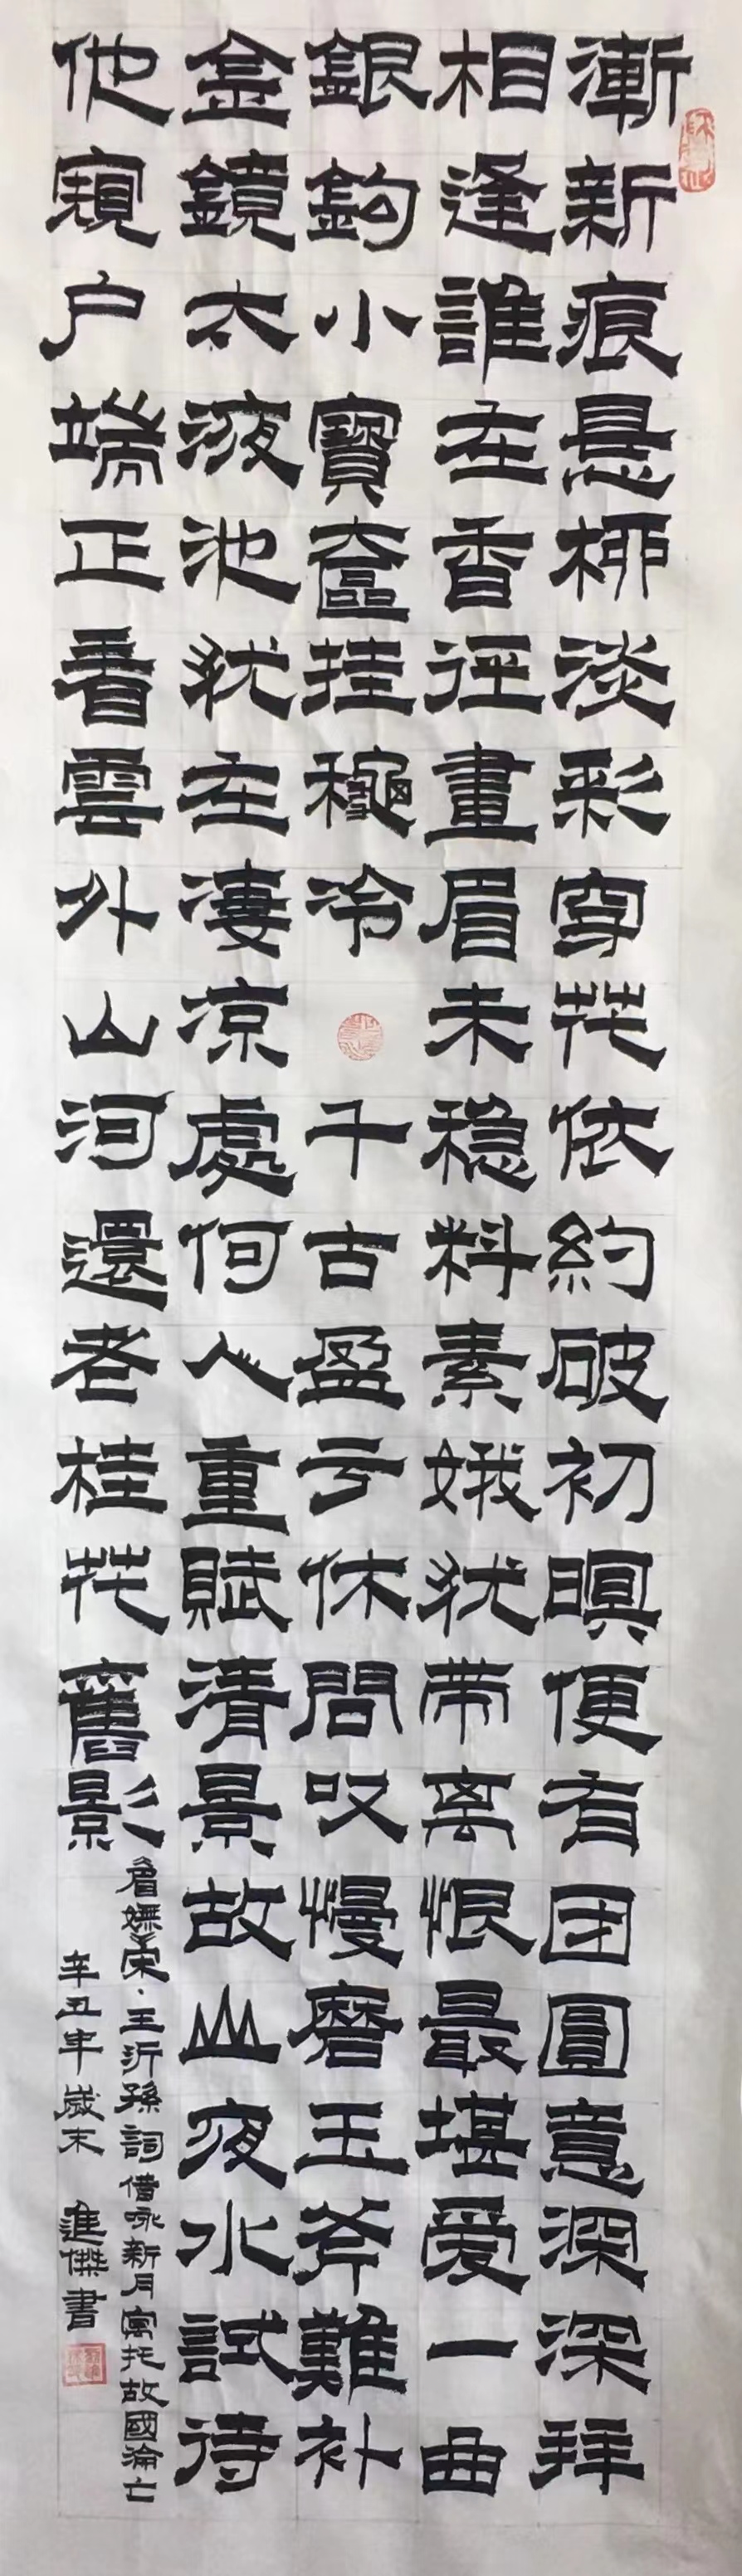 漸新痕悬柳淡彩穿花依約破初暝便有团圓意深深拜
相逢誰在香径畫眉未稳料素娥犹带离恨最堪爱一曲
銀鉤小寶奩挂穐冷 千古盈亏休問叹慢磨玉斧難补
金鏡太液池犹在淒凉處何人重賦清景故山夜水試待
他窺户端正看雲外山河還老桂花舊影
眉嫵 宋·王沂孫詞借咏新月寓托故國淪亡
辛丑年歲末 進傑書